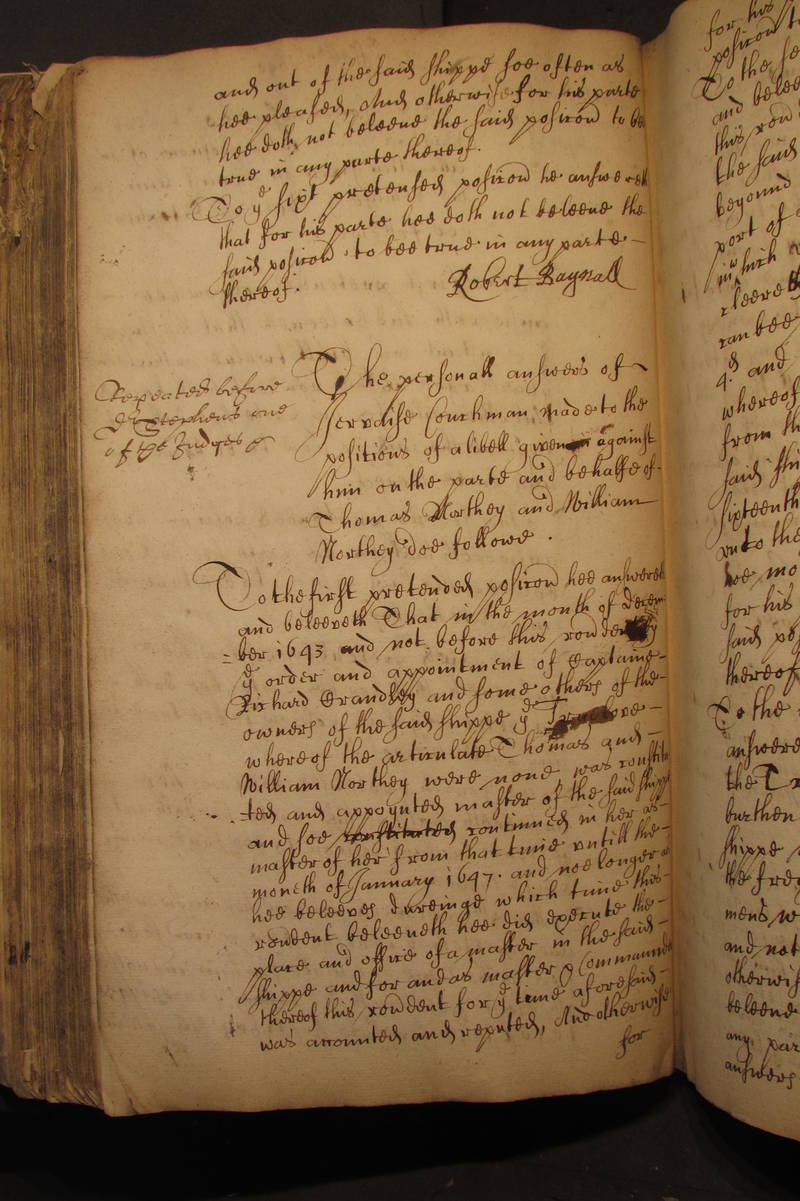 and out of the said shippe soe often as
hee pleased, And otherwise for his parte
hee doth not beleeve the said posicon to be
true in any parte thereof.
To ye sixt pretensed posicon he answereth
that for his parte hee doth not beleeve the
said posicon to bee true in any parte
thereof.
Robert Bagnall
Repeated before
Dr Stephens one
of the Judges
The personall answers of
Servaise Couchman made to the
positions of a libell given against
him on the parte and behalfe of
Thomas Northey and William
Northey doe followe .
To the first pretended posicon hee answereth
and beleeveth That in the month of Decem
=ber 1643 and not before this rondent by
ye order and appointment of Captaine
Richard Crandley and some others of the
owners of the said shippe ye
whereof the articulate Thomas and
William Northey were none, was constitu
=ted and appoynted master of the said shipp
and soe constituted continued in her as
master of her from that time untill the
moneth of January 1647. and noe longer as
hee beleeves dureinge which time this
rondent beleeveth hee did execute the
place and office of a master in the said
shippe and for and as master & Commaunder
thereof this rondent for ye time aforesaid
was accounted and reputed, And otherwise
for
for his
posicon
To the se
and belee
this rond
the said
beyound
port of
in which
cleere
can bee
4 and
whereof
from th
said shi
sixteenth
unto the
hee mo
for his
said po
thereof
To the
answere
the Tr
burthen
shippe
the fre
mens w
and not
otherwis
beleeve
any par
answers